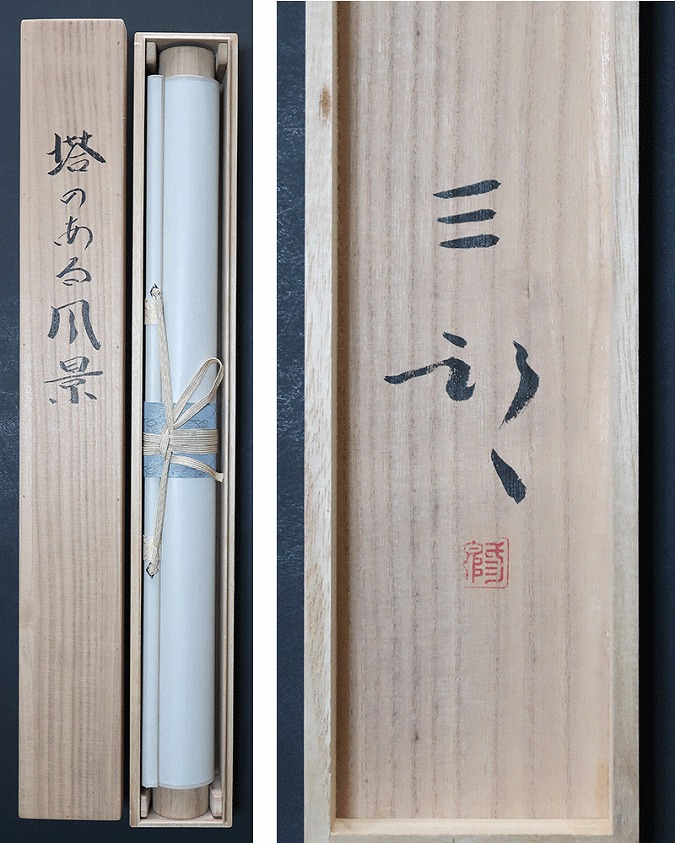 塔のある風景
三郎